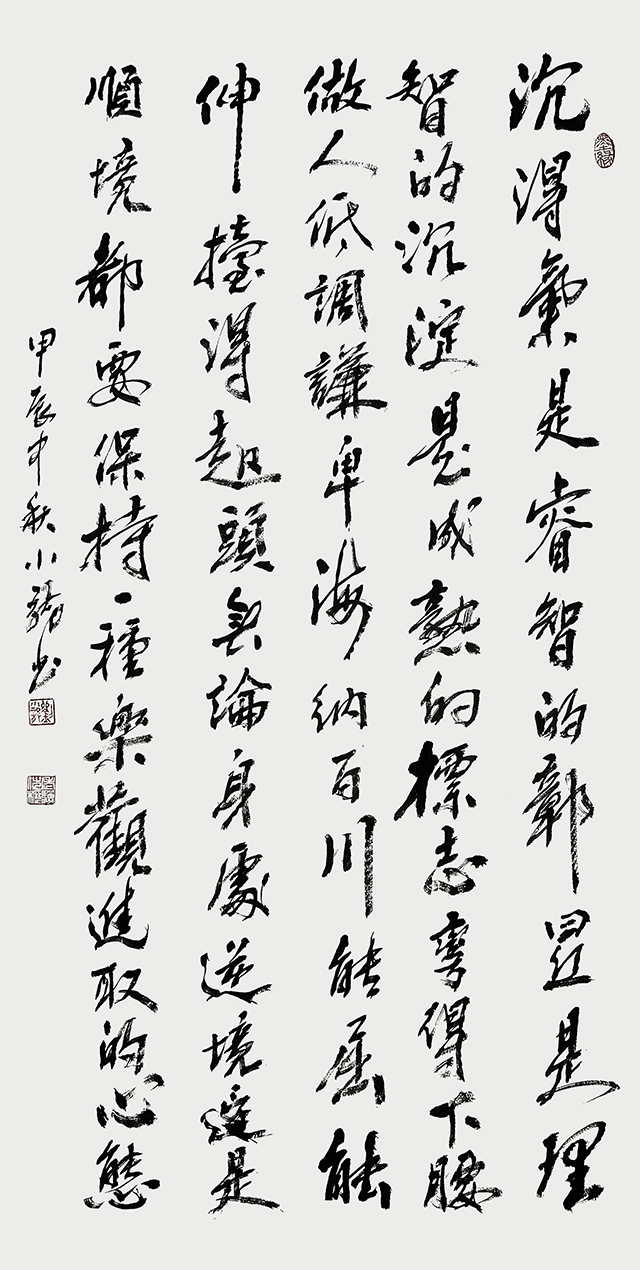 沉得氣是睿智的彰显是理
智的沉淀是成熟的標志弯得下腰
做人低調謙卑海納百川能屈能
伸擡得起頭無論身處逆境還是
順境都要保持一種樂觀進取的心態
甲辰中秋小书